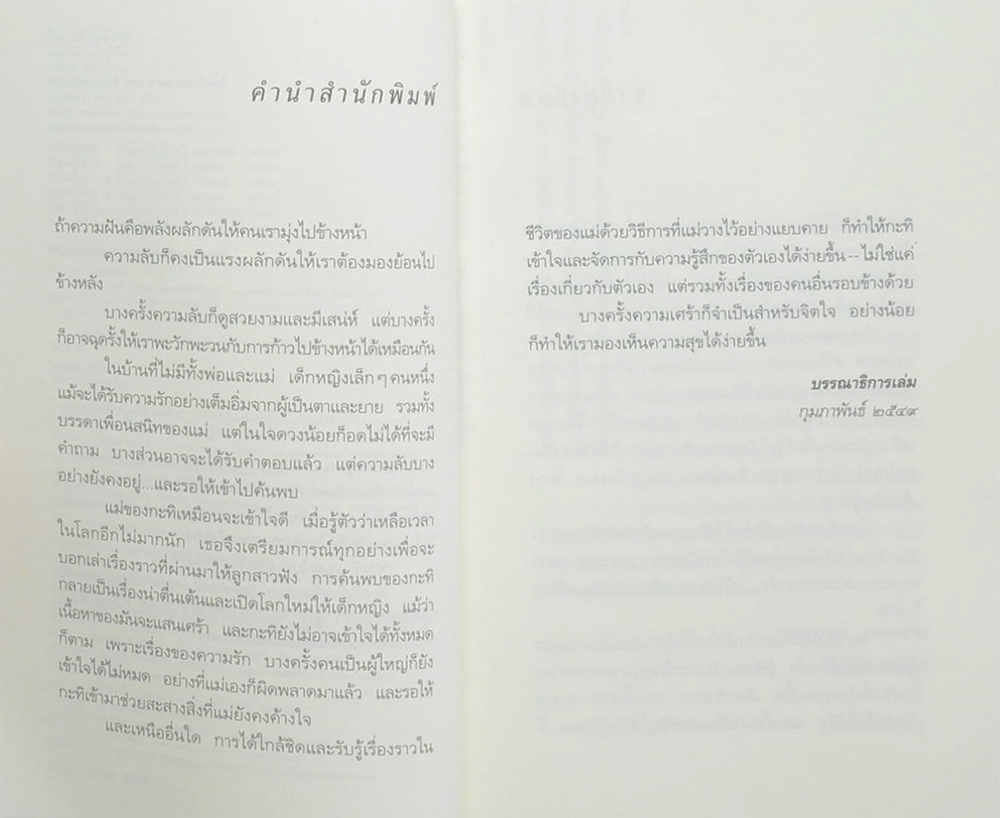 คำนำสำนักพิมพ์
ถ้าความฝันคือพลังผลักดันให้คนเรามุ่งไปข้างหน้า
ความลับก็คงเป็นแรงผลักดันให้เราต้องมองย้อนไป
ข้างหลัง
บางครั้งความลับก็ดูสวยงามและมีเสน่ห์ แต่บางครั้ง
ก็อาจฉุดรั้งให้เราพะวักพะวนกับการก้าวไปข้างหน้าได้เหมือนกัน
ในบ้านที่ไม่มีทั้งพ่อและแม่ เด็กหญิงเล็กๆ คนหนึ่ง
แม้จะได้รับความรักอย่างเต็มอิ่มจากผู้เป็นตาและยาย รวมทั้ง
บรรดาเพื่อนสนิทของแม่ แต่ในใจดวงน้อยก็อดไม่ได้ที่จะมี
คำถาม บางส่วนอาจจะได้รับคำตอบแล้ว แต่ความลับบาง
อย่างยังคงอยู่...และรอให้เข้าไปค้นพบ
แม่ของกะทิเหมือนจะเข้าใจดี เมื่อรู้ตัวว่าเหลือเวลา
ในโลกอีกไม่มากนัก เธอจึงเตรียมการณ์ทุกอย่างเพื่อจะ
บอกเล่าเรื่องราวที่ผ่านมาให้ลูกสาวฟัง การค้นพบของกะทิ
กลายเป็นเรื่องน่าตื่นเต้นและเปิดโลกใหม่ให้เด็กหญิง แม้ว่า
เนื้อหาของมันจะแสนเศร้า และกะทิยังไม่อาจเข้าใจได้ทั้งหมด
ก็ตาม เพราะเรื่องของความรัก บางครั้งคนเป็นผู้ใหญ่ก็ยัง
เข้าใจได้ไม่หมด อย่างที่แม่เองก็ผิดพลาดมาแล้ว และรอให้
กะทิเข้ามาช่วยสะสางสิ่งที่แม่ยังคงค้างใจ
และเหนืออื่นใด การได้ใกล้ชิดและรับรู้เรื่องราวใน
ชีวิตของแม่ด้วยวิธีการที่แม่วางไว้อย่างแยบคาย ก็ทำให้กะทิ
เข้าใจและจัดการกับความรู้สึกของตัวเองได้ง่ายขึ้น -- ไม่ใช่แค่
เรื่องเกี่ยวกับตัวเอง แต่รวมทั้งเรื่องของคนอื่นรอบข้างด้วย
บางครั้งความเศร้าก็จำเป็นสำหรับจิตใจ อย่างน้อย
ก็ทำให้เรามองเห็นความสุขได้ง่ายขึ้น
บรรณาธิการเล่ม
กุมภาพันธ์ ๒๕๔๙